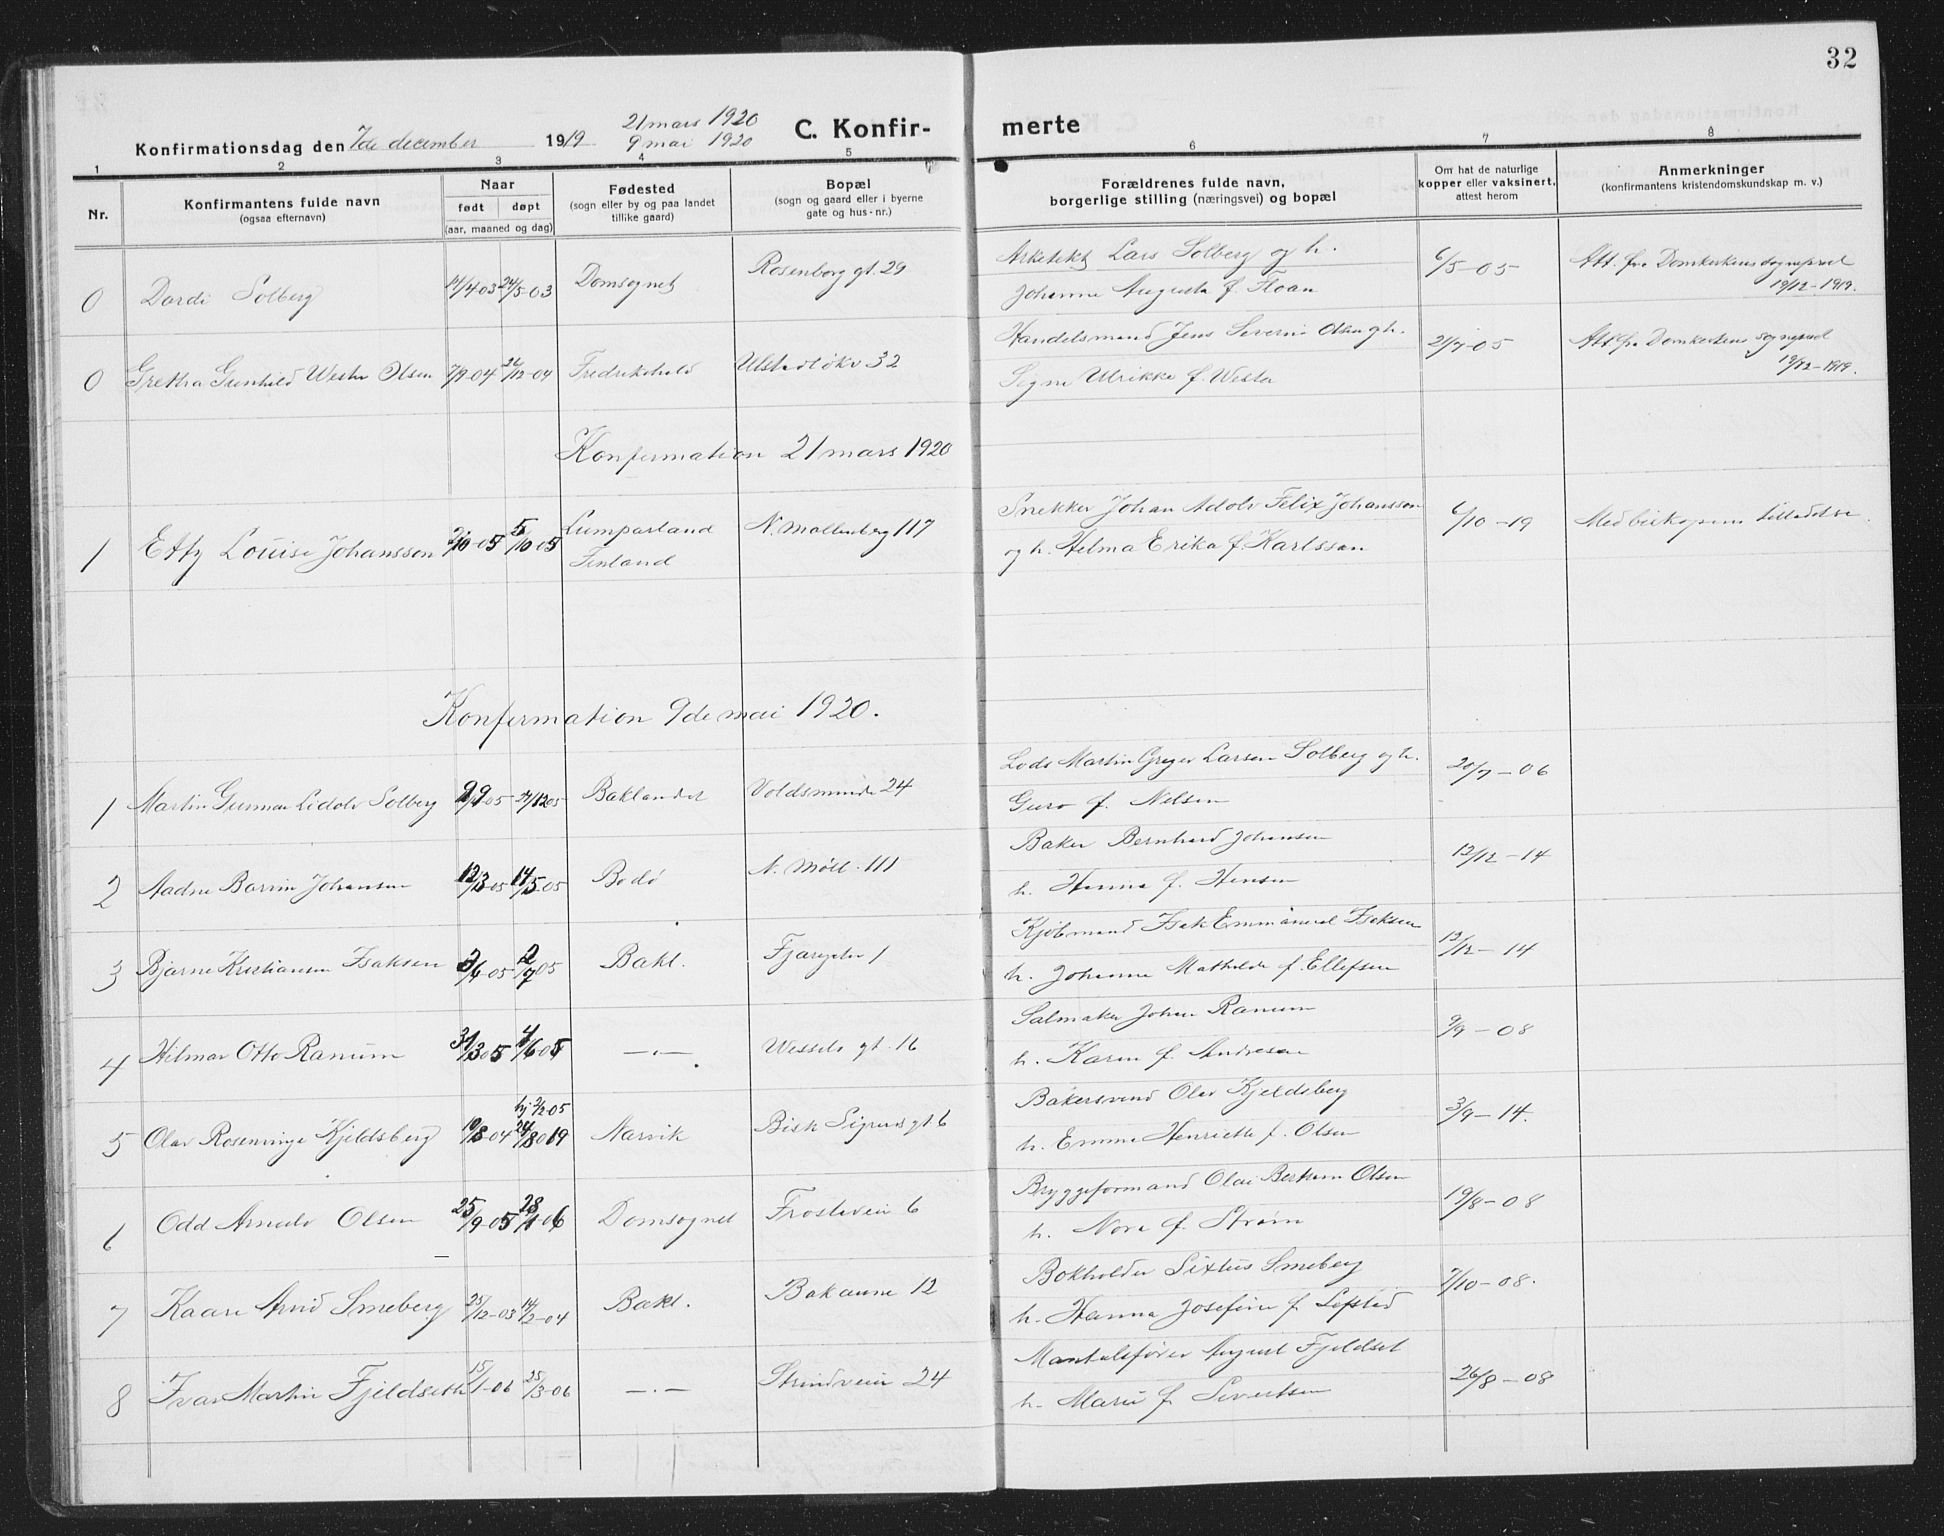 32
Konfirmationsdag den 7de december 1919 21 mars 1920 9 mai 1920 C. Konfir- merte
1 2 3 4 5 6 7 8
Nr.
Konfirmantens fulde navn (ogsaa efternavn)
Naar født døpt (aar, maaned og dag)
Fødested (sogn eller by og paa landet tillike gaard)
Bopæl (sogn og gaard eller i byerne gate og hus-nr.)
Forældrenes fulde navn, borgerlige stilling (næringsvei) og bopæl
Om hat de naturlige kopper eller vaksinert, attest herom
Anmerkninger (konfirmantens kristendomskundskap m. v.)
0 Dordi Solberg 14/4 03 24/5-03 Domsognet Rosenborg gt. 29
Arkitekt Lars Solberg og h. Johanne Augusta f. Floan 6/5-05
Att. fra Domkirkens sogneprest 19/12-1919.
0 Gretha Gunhild Olsen 7/9-04 26/12-04 Fredrikshald 32
Handelsmand Jens Severin Olsen og h. Ulrikke f. 21/7-05
Att fra Domkirkens sogneprest 19/12-1919.
Konfirmation 21 mars 1920
1 Etty Louise Johansson 2/10-05 5/10-05 Lumparland Finland N. Møllenberg 117
Snekker Johan Adolv Felix Johansson og h. Hilma Erika f. Karlsson 6/10-19
Med biskopens tilladelse.
Konfirmation 9de mai 1920.
1 Martin Gunnar Lidolv Solberg 9/9 05 24/12 05 Baklandet Voldsminde 24
Lods Martin Larsen Solberg og h. Guro f. Nilsen 20/7-06
2 Aadne Johansen 12/3-05 14/5-05 Bodø N. Møll. 111
Baker Bernhard Johansen h. Hanna f. Hansen 12/12-14
3 Bjarne Kristiansen Isaksen 05 2/7 05 Bakl. 1
Kjøbmand Isak Emmanuel Isaksen h. Johanne Mathilde f. Ellefsen 12/12-14
4 Hilmar Otto Ranum 31/3 05 4/6 05 —„— Wessels gt. 16
Salmaker Johan Ranum h. Karen f. Andresen 9/9-08
5 Olav Rosenvinge Kjeldsberg 10/8-04 hj 2/2-05 24/8 19 Narvik Bisk Sigurds gt 6
Bakersvend Olav Kjeldsberg h. Emma Henriette f. Olsen 3/9-14.
6 Odd Arnulv Olsen 25/9-05 28/1-06 Domsognet Frostaveien 6
Bryggeformand Olai Olsen h. Nora f. Strøm 19/8-08
7 Kaare Arvid Smeberg 25/12-03 14/2-04 Bakl. Bakaune 12
Bokholder Sixtus Smeberg h. Hanna Josefine f. 7/10-08.
8 Ivar Martin Fjeldseth 15/1-06 25/3-06 —„— Strindveien 24
August Fjeldset h. Marie f. Sivertsen 26/8-08